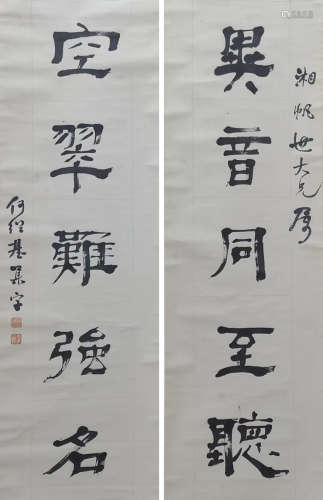 湘帆世大兄屬
異音同至聽
空翠難強名
何紹基集字